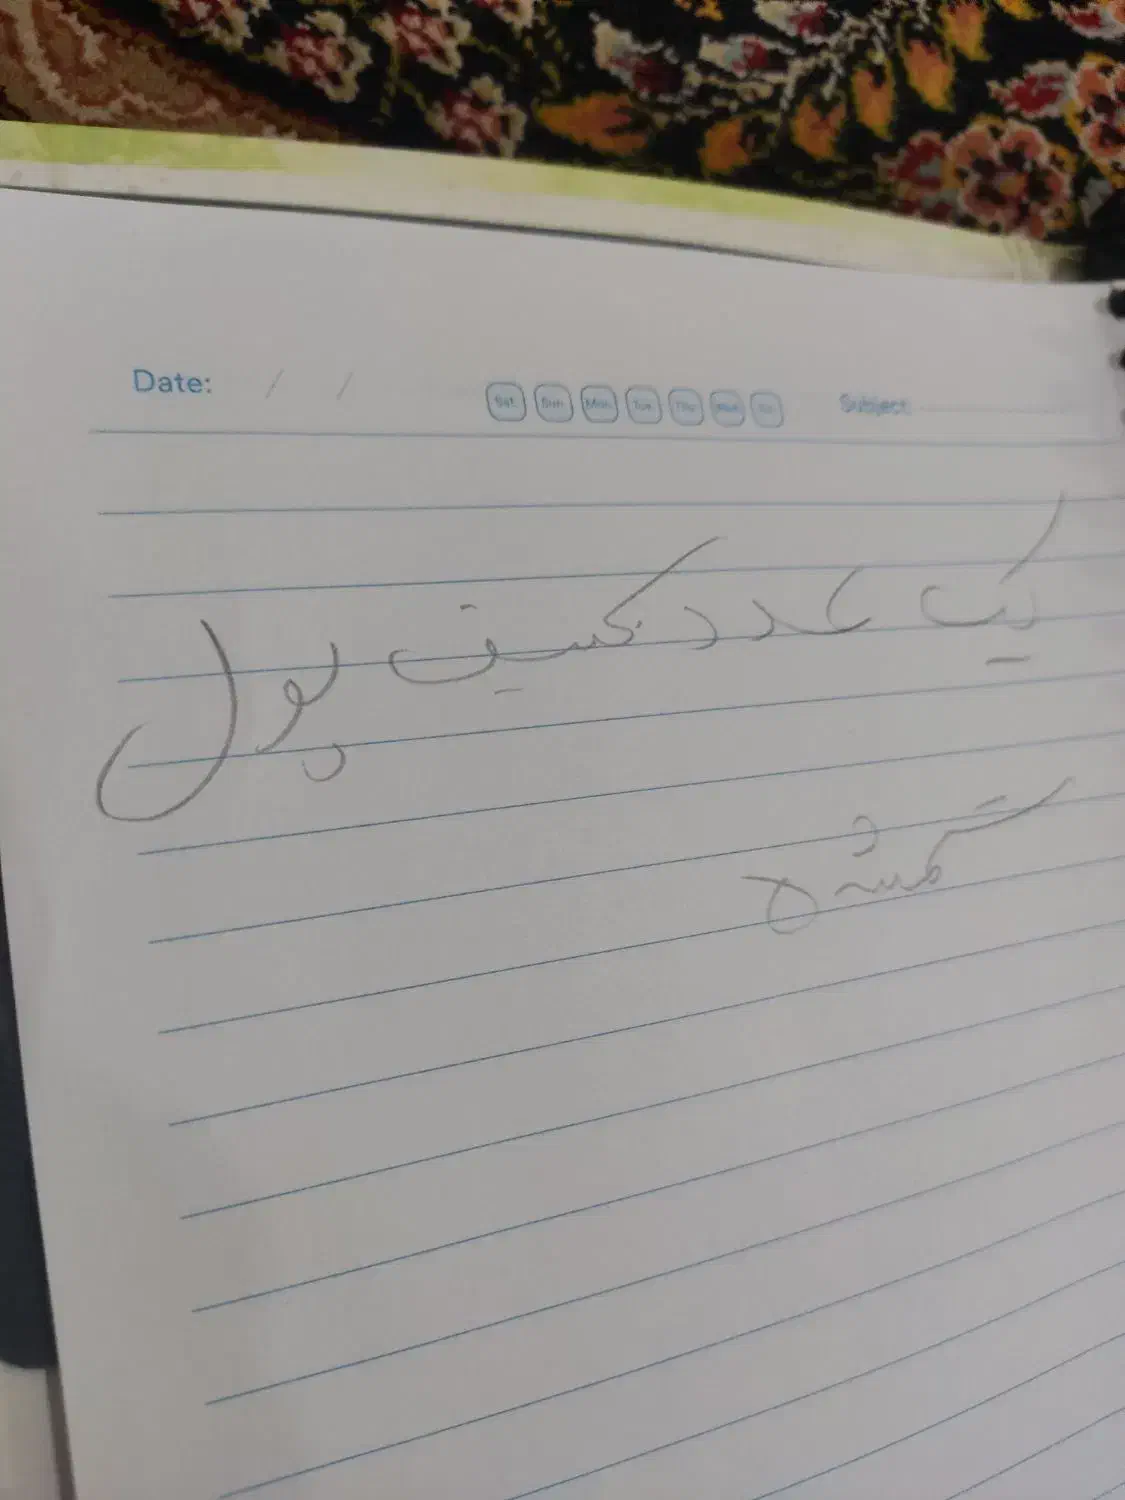 Date: / / Sat. Sun. Mon. Tue. Thu. Wed. Fri. Subject:
یک عدد کیف پول
گمشده